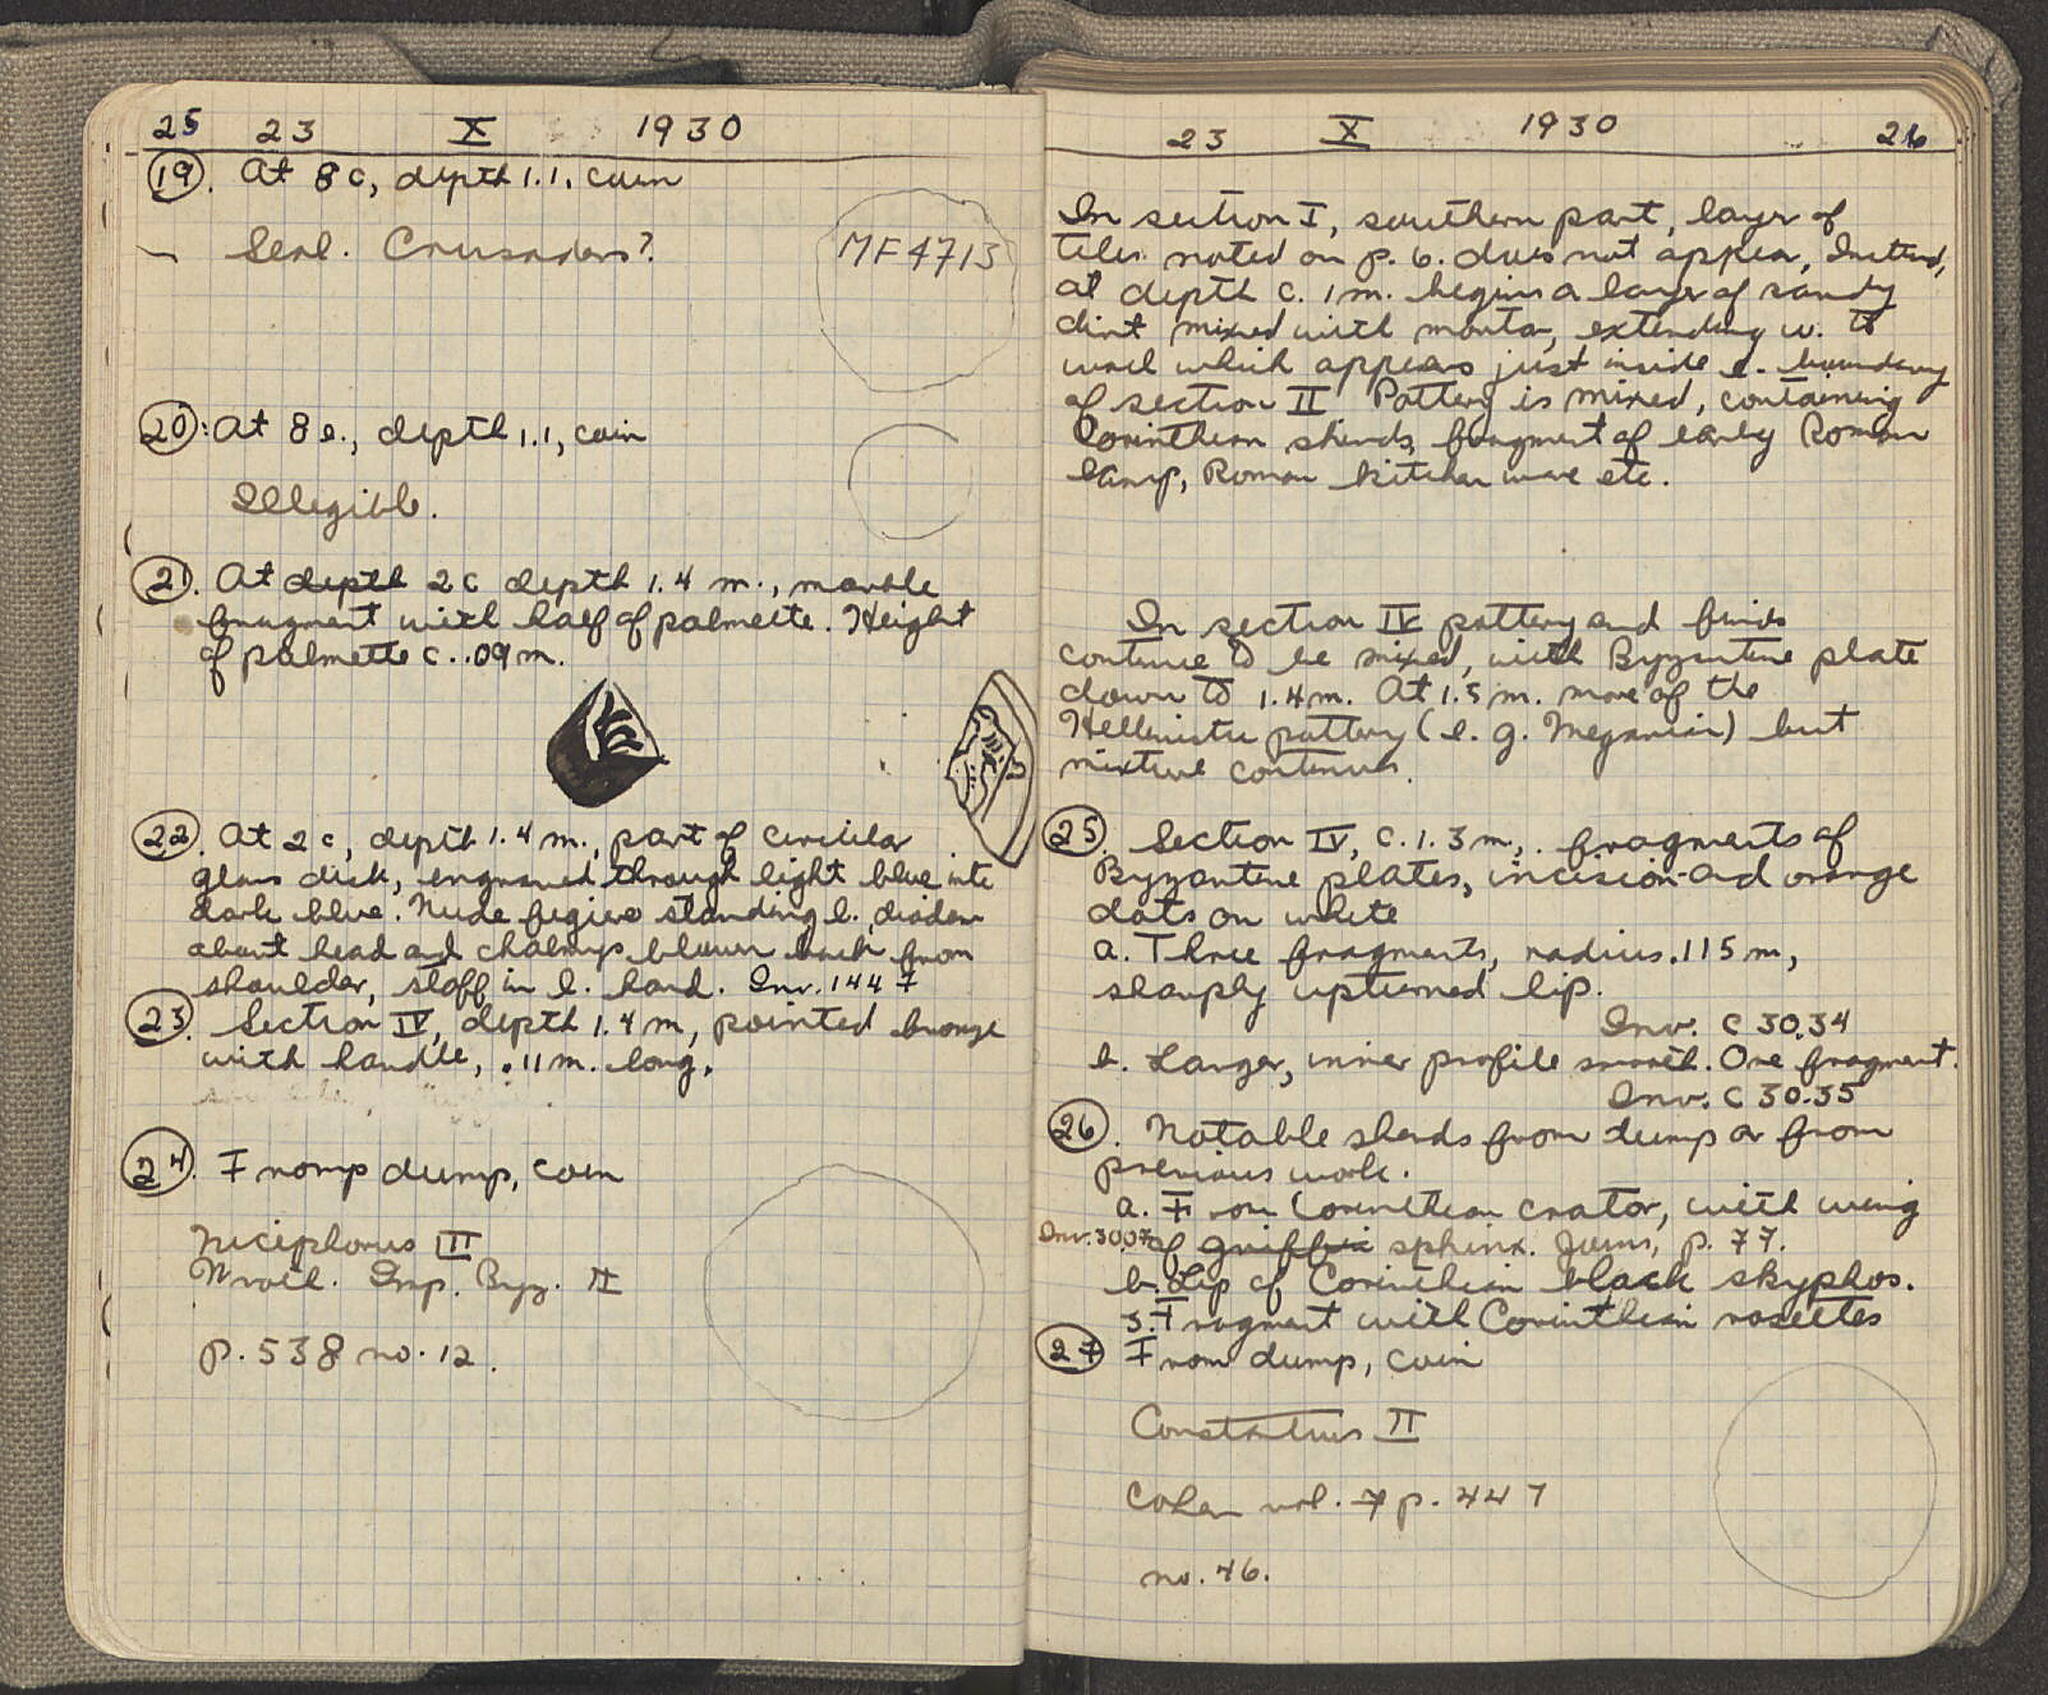 25 23 X 1930
19. At 8 c, depth 1.1, coin
Seal. Crusaders?
MF 4713
20: At 8 e., depth 1.1, coin
Illegible.
21. At depth 2 c depth 1.4 m., marble
fragment with half of palmette. Height
of palmette c. .09 m.
22. At 2 c, depth 1.4 m., part of circular
glass disk, engraved through light blue into
dark blue. Nude figure standing l., diadem
about head and chalmys blown back from
shoulder, staff in l. hand. Inv. 1447
23. Section IV, depth 1.4 m, pointed bronze
with handle, .11 m. long.
24. Fromp dump, coin
Niciphorus III
Wroth. Imp. Byz. II
p. 538 no. 12.
23 X 1930 26
In section I, southern part, layer of
tiles noted on p. 6. does not appear, Instead,
at depth c. 1 m. begins a layer of sandy
dirt mixed with mortar, extending w. to
wall which appears just inside e. boundary
of section II Pottery is mixed, containing
Corinthian sherds, fragment of early Roman
lamp, Roman kitchen ware etc.
In section IV pottery and finds
continue to be mixed, with Byzantine plate
down to 1.4 m. At 1.5 m. more of the
Hellenistic pottery (e. g. Megarian) but
mixture continues.
25. Section IV, c. 1.3 m., fragments of
Byzantine plates, incision and orange
dots on white
a. Three fragments, radius .115 m,
sharply upturned lip.
Inv. C 30.34
b. Larger, inner profile smooth. One fragment.
Inv. C 30.35
26. Notable sherds from dump or from
previous work.
a. From Corinthian crator, with wing
Inv. 3007 of griffin sphinx. Jums, p. 77.
b. Lip of Corinthian black skyphos.
3. Fragment with Corinthian rosettes
27 From dump, coin
Constantius II
Cohen vol. 7 p. 447
no. 46.